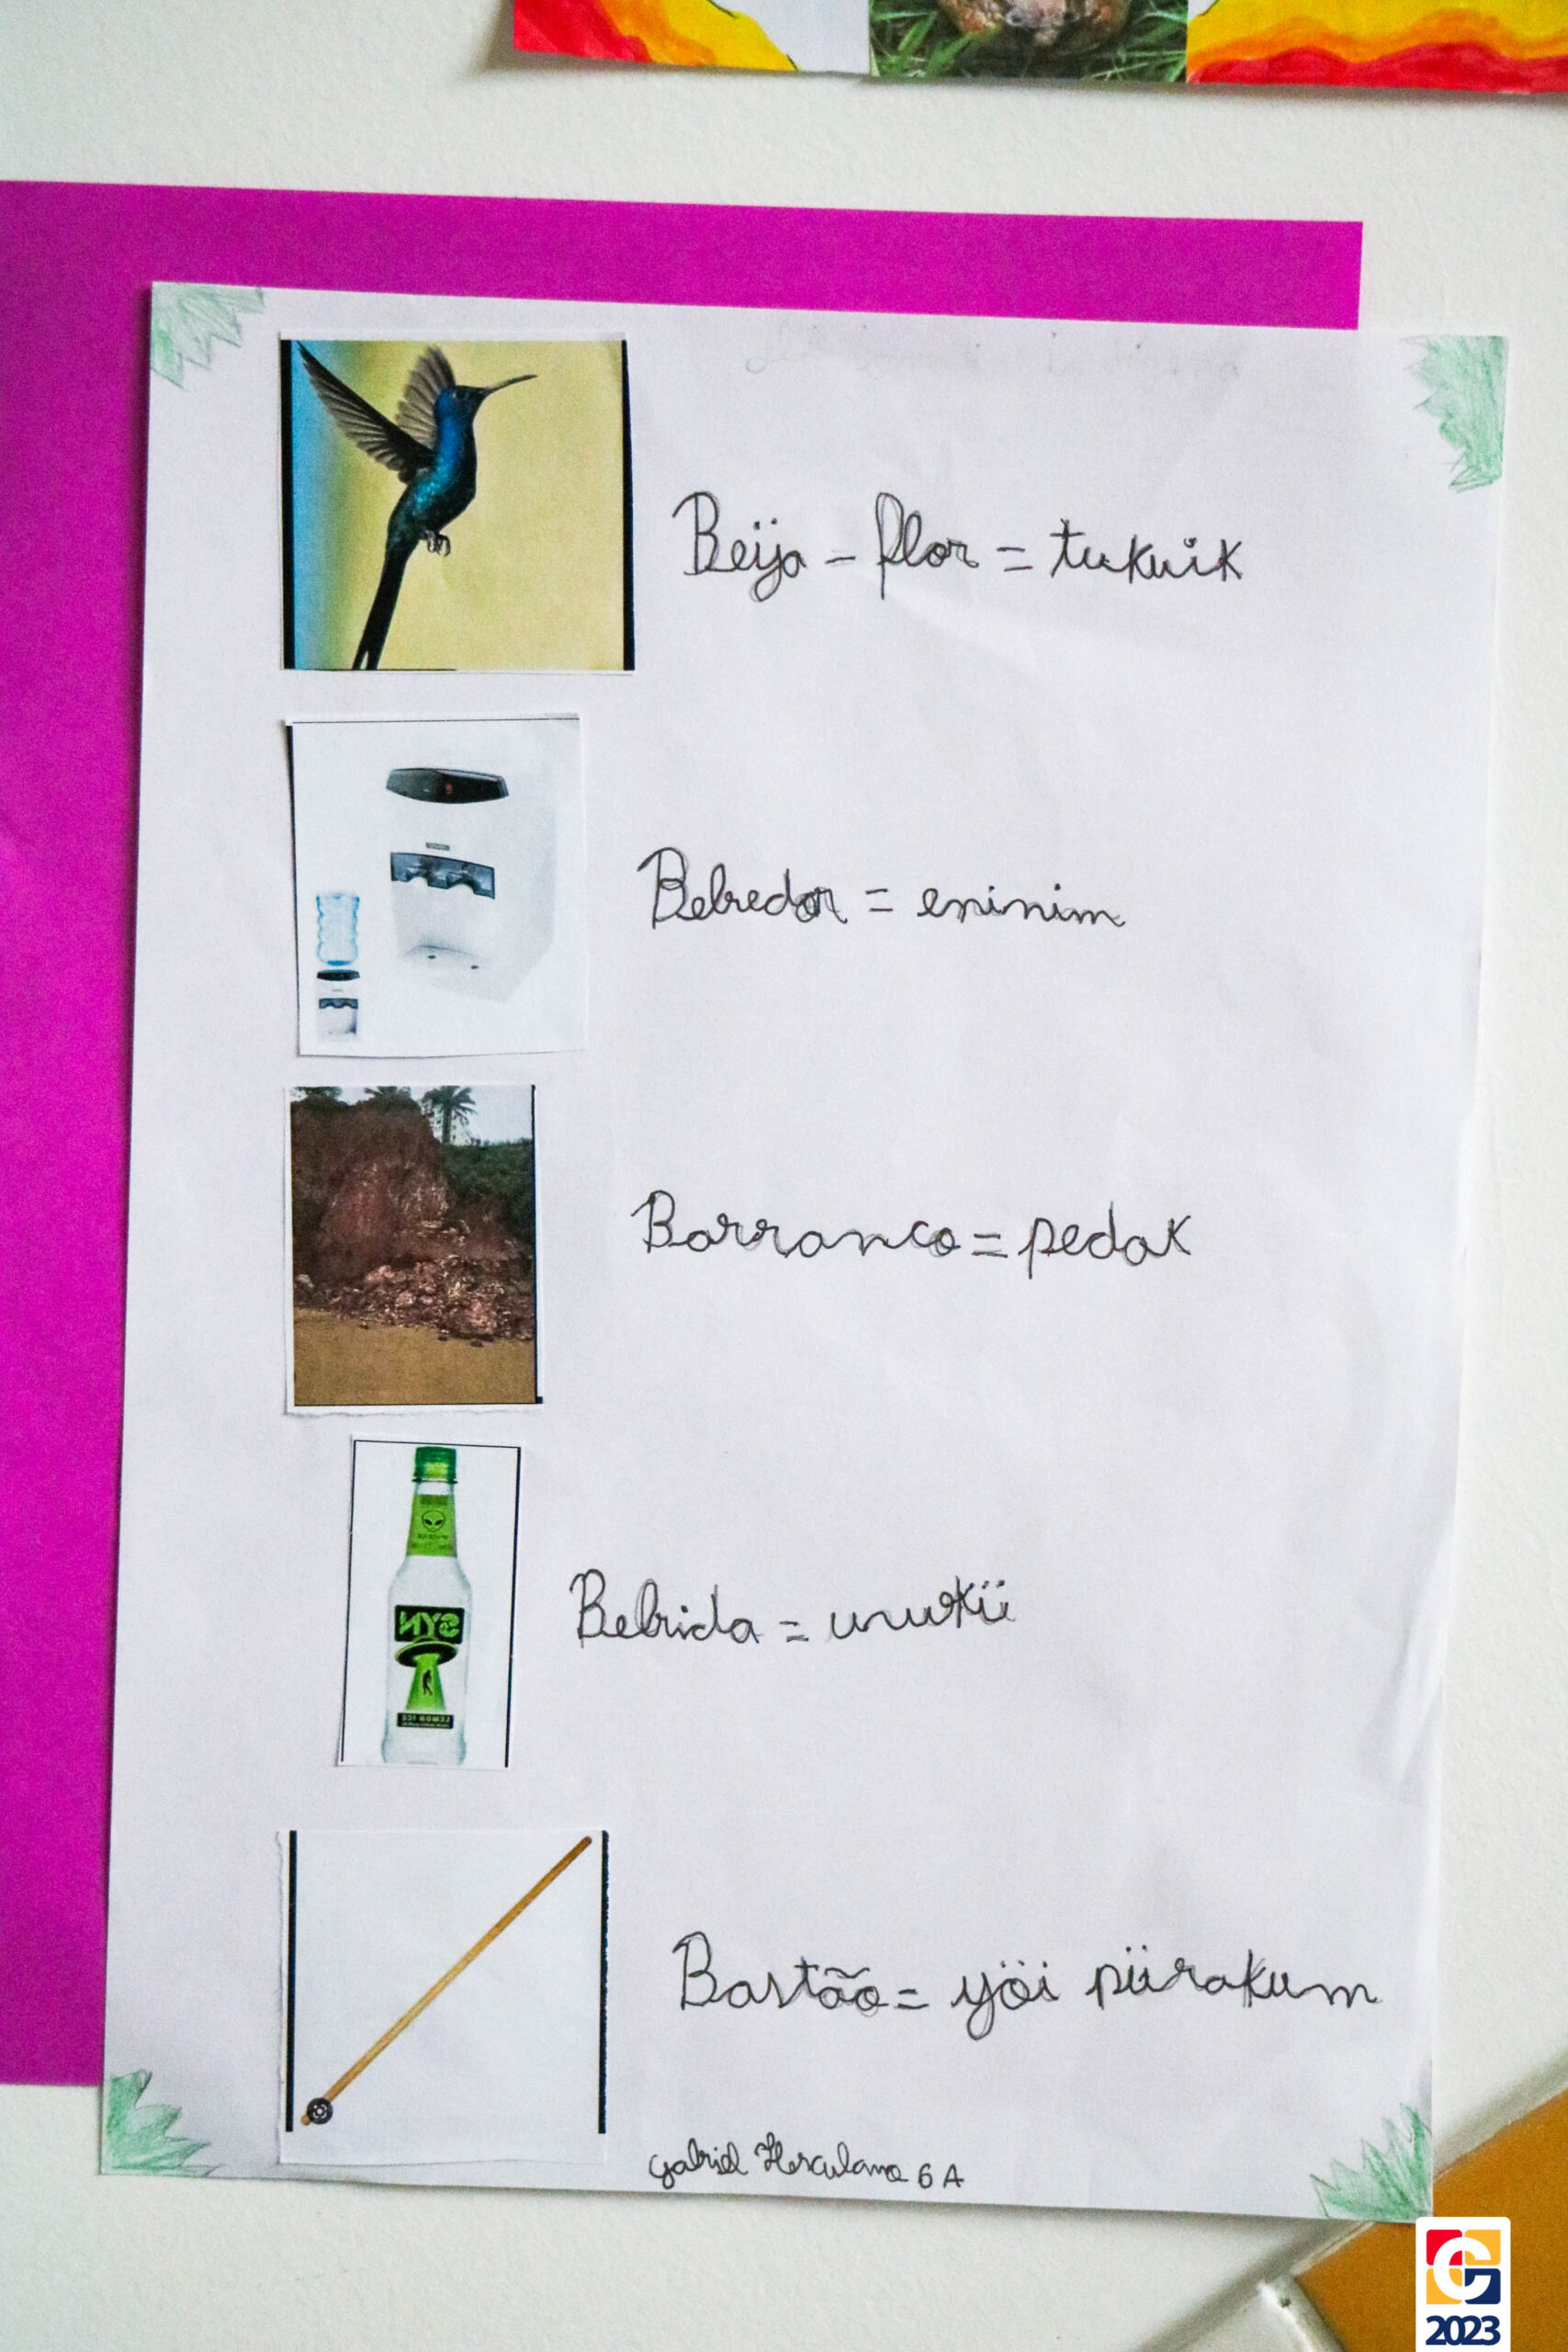 Beija - flor = tukuik
Bebedor = eninim
Barranco = pedak
SYN
LEMON ICE
Bebida = wukü
Bastão = yöi püirakum
Gabriel Herculano 6 A
2023